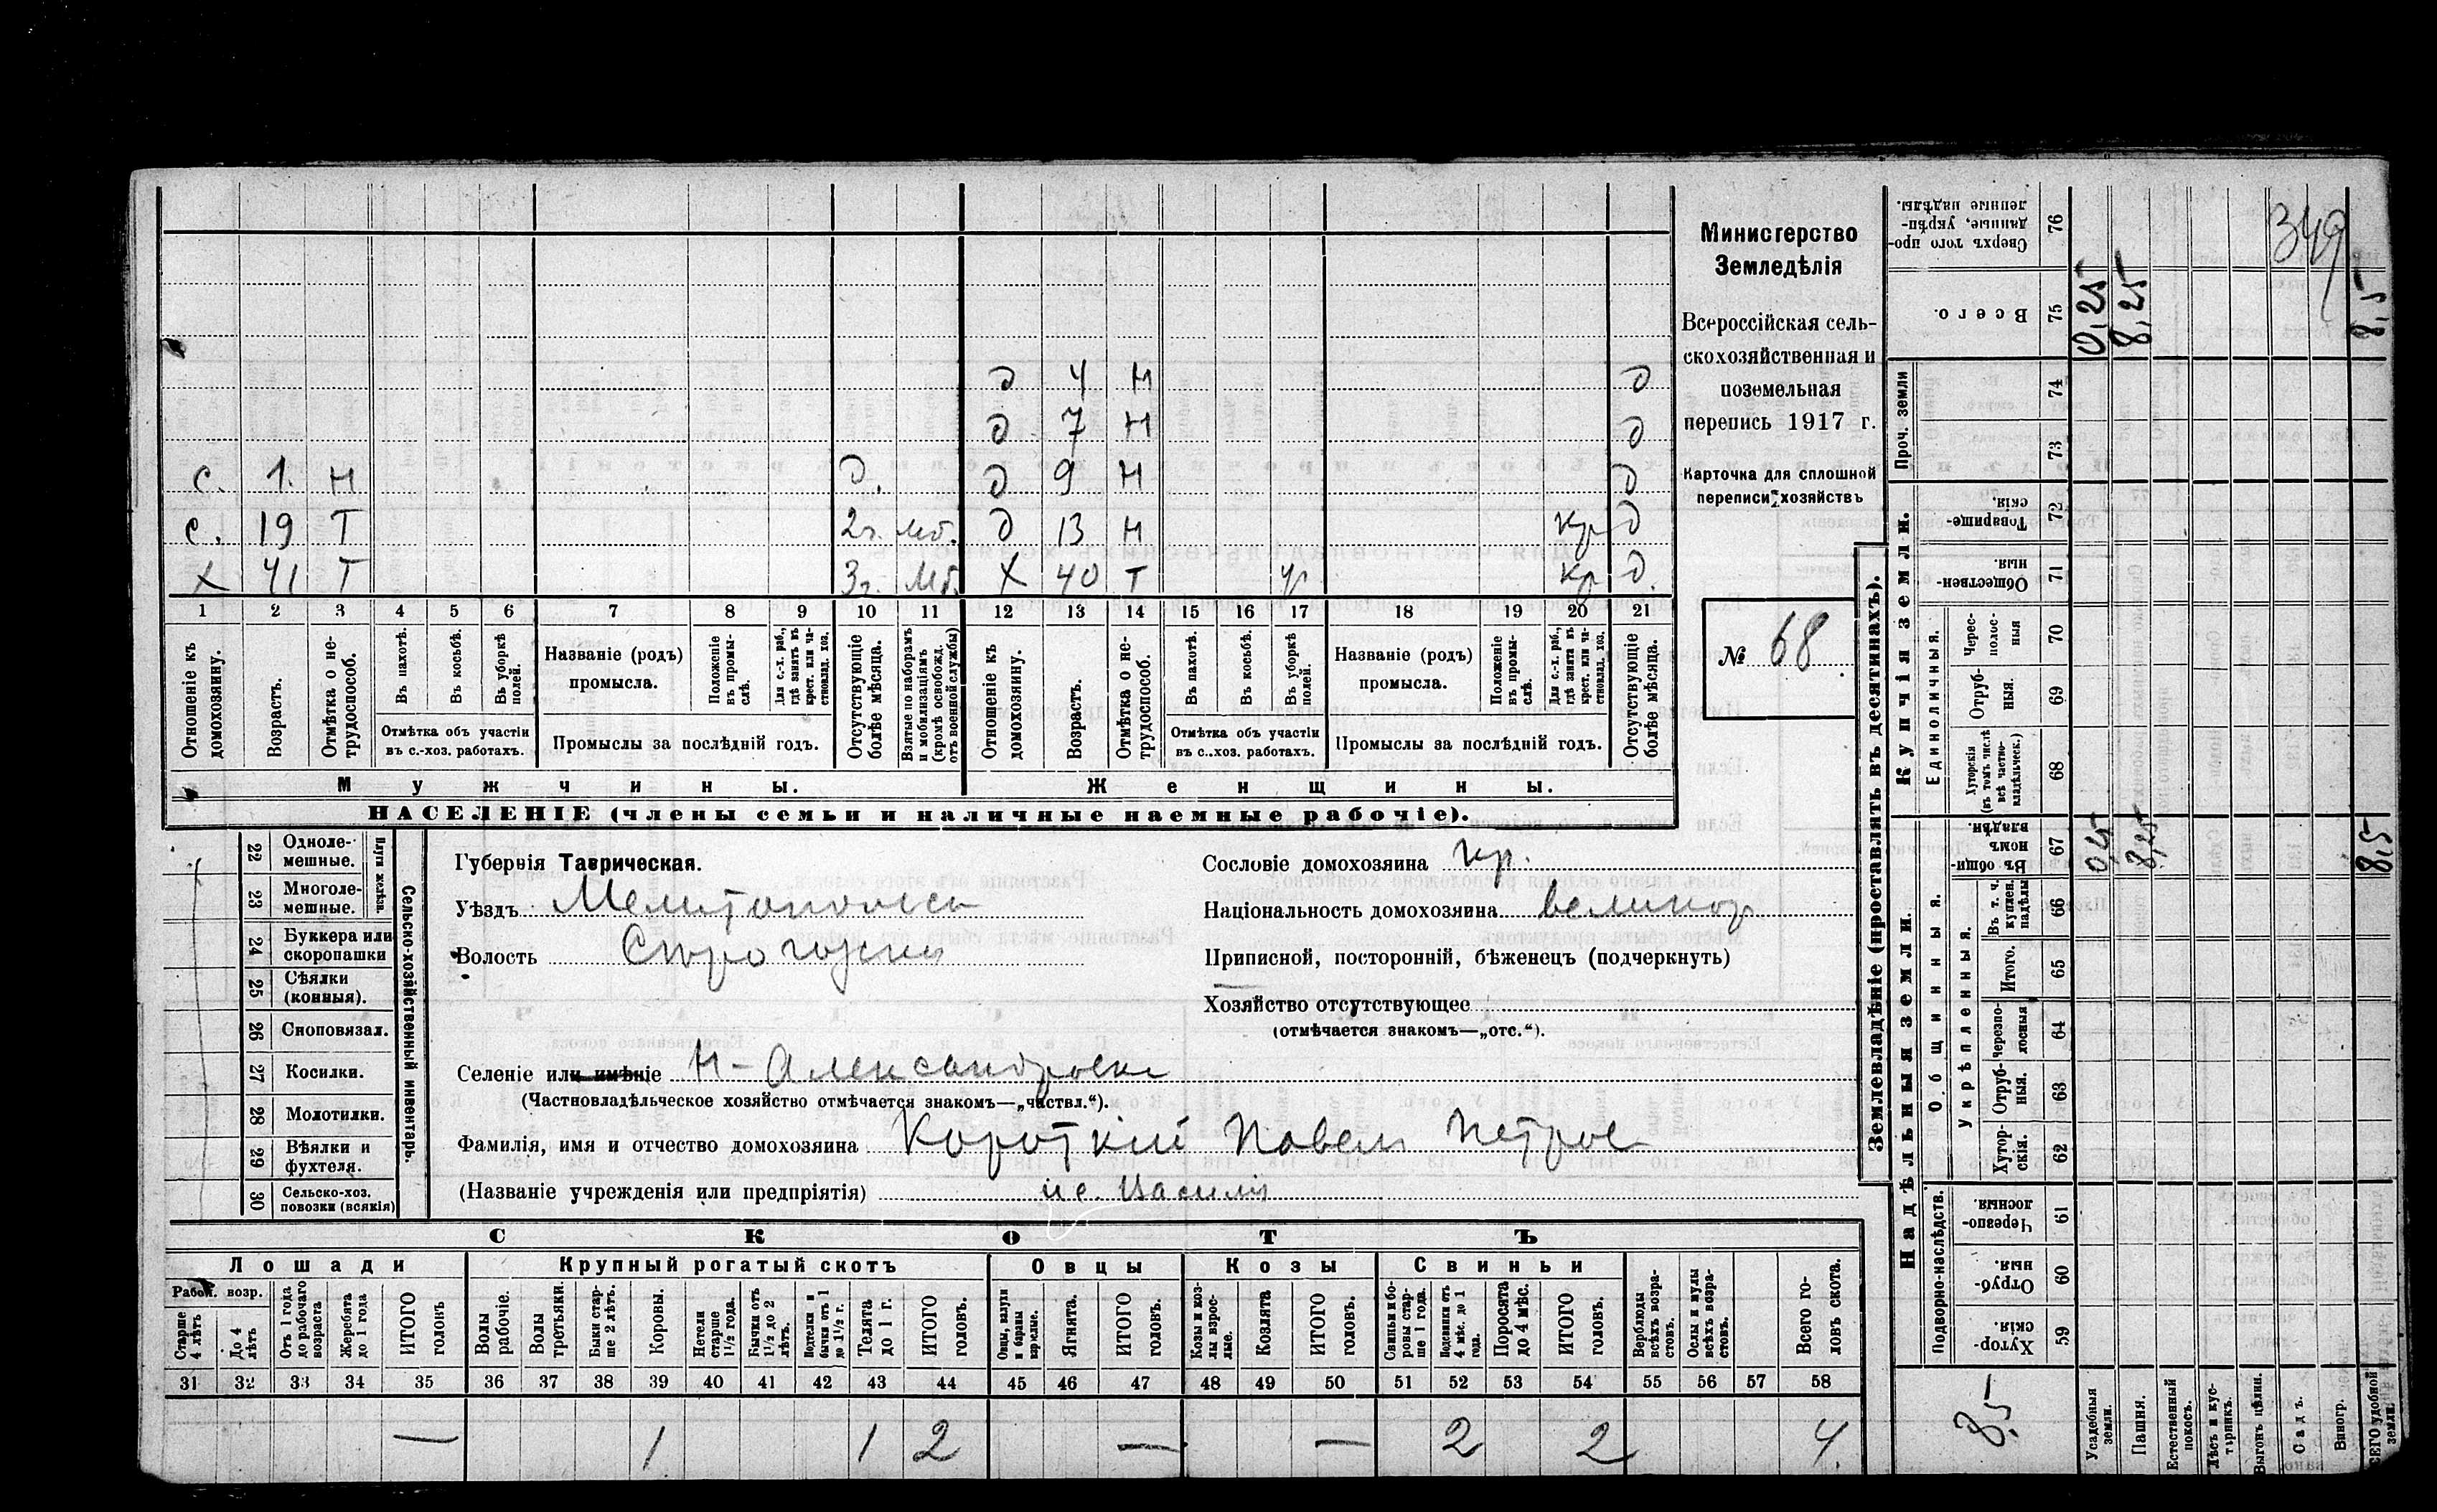 Министерство
Земледѣлія
Всероссійская сель-
скохозяйственная и
поземельная
перепись 1917 г.
Карточка для сплошной
переписи хозяйствъ
№ 68
д 4 Н д
д 7 Н д
с. 1. Н д. д 9 Н д
с. 19 Т 2г. мб. д 13 Н кр д
х 41 Т 3г. Мб. х 40 Т у кр д.
1 2 3 4 5 6 7 8 9 10 11 12 13 14 15 16 17 18 19 20 21
Отношеніе къ домохозяину.
Возрастъ.
Отмѣтка о не-трудоспособ.
Въ пахотѣ.
Въ косьбѣ.
Въ уборкѣ полей.
Отмѣтка объ участіи
въ с.-хоз. работахъ.
Названіе (родъ)
промысла.
Положеніе въ промы-слѣ.
Для с.-х. раб., гдѣ занятъ въ крест. или ча-стновлад. хоз.
Промыслы за послѣдній годъ.
Отсутствующіе болѣе мѣсяца.
Взятые по наборамъ и мобилизаціямъ (кромѣ освобожд. отъ военной службы)
Отношеніе къ домохозяину.
Возрастъ.
Отмѣтка о не-трудоспособ.
Въ пахотѣ.
Въ косьбѣ.
Въ уборкѣ полей.
Отмѣтка объ участіи
въ с.-хоз. работахъ.
Названіе (родъ)
промысла.
Положеніе въ промы-слѣ.
Для с.-х. раб., гдѣ занята въ крест. или ча-стновлад. хоз.
Промыслы за послѣдній годъ.
Отсутствующіе болѣе мѣсяца.
Мужчины. Женщины.
НАСЕЛЕНІЕ (члены семьи и наличные наемные рабочіе).
22 Одноле-мешные.
23 Многоле-мешные.
Плуги желѣзн.
24 Буккера или скоропашки
25 Сѣялки (конныя).
26 Сноповязал.
27 Косилки.
28 Молотилки.
29 Вѣялки и фухтеля.
30 Сельско-хоз. повозки (всякія)
Сельско-хозяйственный инвентарь.
Губернія Таврическая.
Уѣздъ Мелитопольск
Волость
Сословіе домохозяина кр.
Національность домохозяина великор
Приписной, посторонній, бѣженецъ (подчеркнуть)
Хозяйство отсутствующее
(отмѣчается знакомъ—„отс.“).
Селеніе или имѣніе Н-Александровка
(Частновладѣльческое хозяйство отмѣчается знакомъ—„частвл.“).
Фамилія, имя и отчество домохозяина Короткій Павел Петров
(Названіе учрежденія или предпріятія)
СКОТЪ
Лошади Крупный рогатый скотъ Овцы Козы Свиньи
Рабоч. возр.
Старше 4 лѣтъ
До 4 лѣтъ
Отъ 1 года до рабочаго возраста
Жеребята до 1 года
ИТОГО головъ
Волы рабочіе.
Волы третьяки.
Быки стар-ше 2 лѣтъ.
Коровы.
Нетели старше 1½ года.
Бычки отъ 1½ до 2 лѣтъ.
Нетелки и бычки отъ 1 до 1½ г.
Телята до 1 г.
ИТОГО головъ.
Овцы, валухи и бараны взрослые.
Ягнята.
ИТОГО головъ.
Козы и коз-лы взрос-лые.
Козлята
ИТОГО головъ.
Свиньи и бо-ровы стар-ше 1 года.
Подсвинки отъ 4 мѣс. до 1 года.
Поросята до 4 мѣс.
ИТОГО головъ.
Верблюды всѣхъ возра-стовъ.
Ослы и мулы всѣхъ возра-стовъ.
Всего го-ловъ скота.
31 32 33 34 35 36 37 38 39 40 41 42 43 44 45 46 47 48 49 50 51 52 53 54 55 56 57 58
— 1 1 2 — — 2 2 4.
Землевладѣніе (проставлять въ десятинахъ).
Надѣльныя земли.
Купчія земли.
Проч. земли
Подворно-наслѣдств.
Общинныя.
Укрѣпленныя.
Единоличныя.
Хутор-скія. 59
Отруб-ныя. 60
Черезпо-лосныя 61
Хутор-скія. 62
Отруб-ныя. 63
Черезпо-лосныя 64
Итого. 65
Въ т. ч. куплен. надѣлы 66
Въ общин-номъ владѣн. 67
Хуторскія (въ томъ числѣ всѣ частно-владѣльческ.) 68
Отруб-ныя. 69
Черес-полос-ныя 70
Обществен-ныя. 71
Товарище-скія. 72
73
74
Всего. 75
Сверхъ того про-данные, укрѣп-ленные надѣлы. 76
Усадебныя земли. 0,25 0,25
Пашня. 8,25 8,25
Естественный покосъ.
Лѣсъ и кус-тарникъ.
Выгонъ цѣлин.
Садъ.
Виногр.
ВСЕГО удобной земли. 8,5 8,5
8,5
349